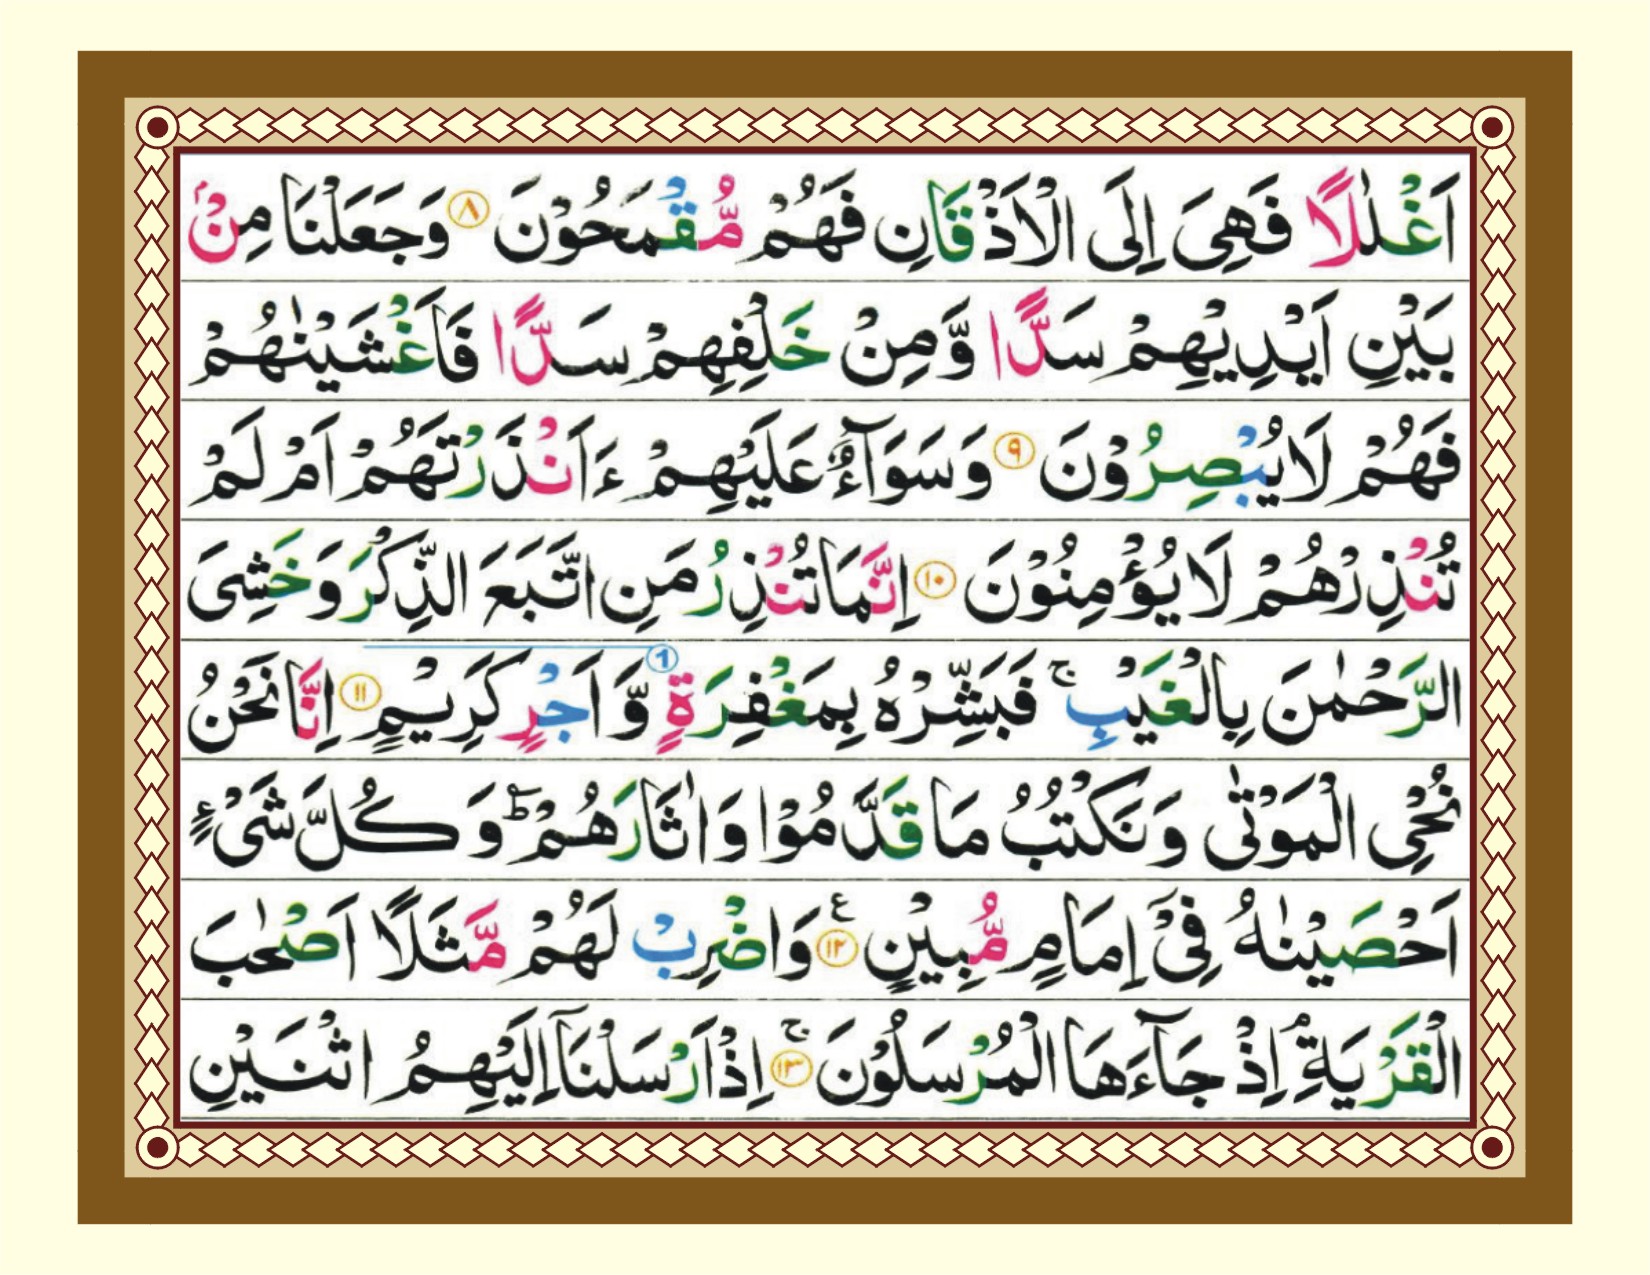 اَغْلٰلًا فَهِىَ اِلَى الْاَذْقَانِ فَهُمْ مُّقْمَحُوْنَ ۝٨ وَجَعَلْنَا مِنْۢ
بَيْنِ اَيْدِيْهِمْ سَدًّا وَّمِنْ خَلْفِهِمْ سَدًّا فَاَغْشَيْنٰهُمْ
فَهُمْ لَا يُبْصِرُوْنَ ۝٩ وَسَوَآءٌ عَلَيْهِمْ ءَاَنْذَرْتَهُمْ اَمْ لَمْ
تُنْذِرْهُمْ لَا يُؤْمِنُوْنَ ۝١٠ اِنَّمَا تُنْذِرُ مَنِ اتَّبَعَ الذِّكْرَ وَخَشِىَ
الرَّحْمٰنَ بِالْغَيْبِ ۚ فَبَشِّرْهُ بِمَغْفِرَةٍ ① وَّاَجْرٍ كَرِيْمٍ ۝١١ اِنَّا نَحْنُ
نُحْىِ الْمَوْتٰى وَنَكْتُبُ مَا قَدَّمُوْا وَاٰثَارَهُمْ ؕ وَكُلَّ شَىْءٍ
اَحْصَيْنٰهُ فِىْۤ اِمَامٍ مُّبِيْنٍ ۝١٢ ع وَاضْرِبْ لَهُمْ مَّثَلًا اَصْحٰبَ
الْقَرْيَةِ ۘ اِذْ جَآءَهَا الْمُرْسَلُوْنَ ۝١٣ ۚ اِذْ اَرْسَلْنَاۤ اِلَيْهِمُ اثْنَيْنِ